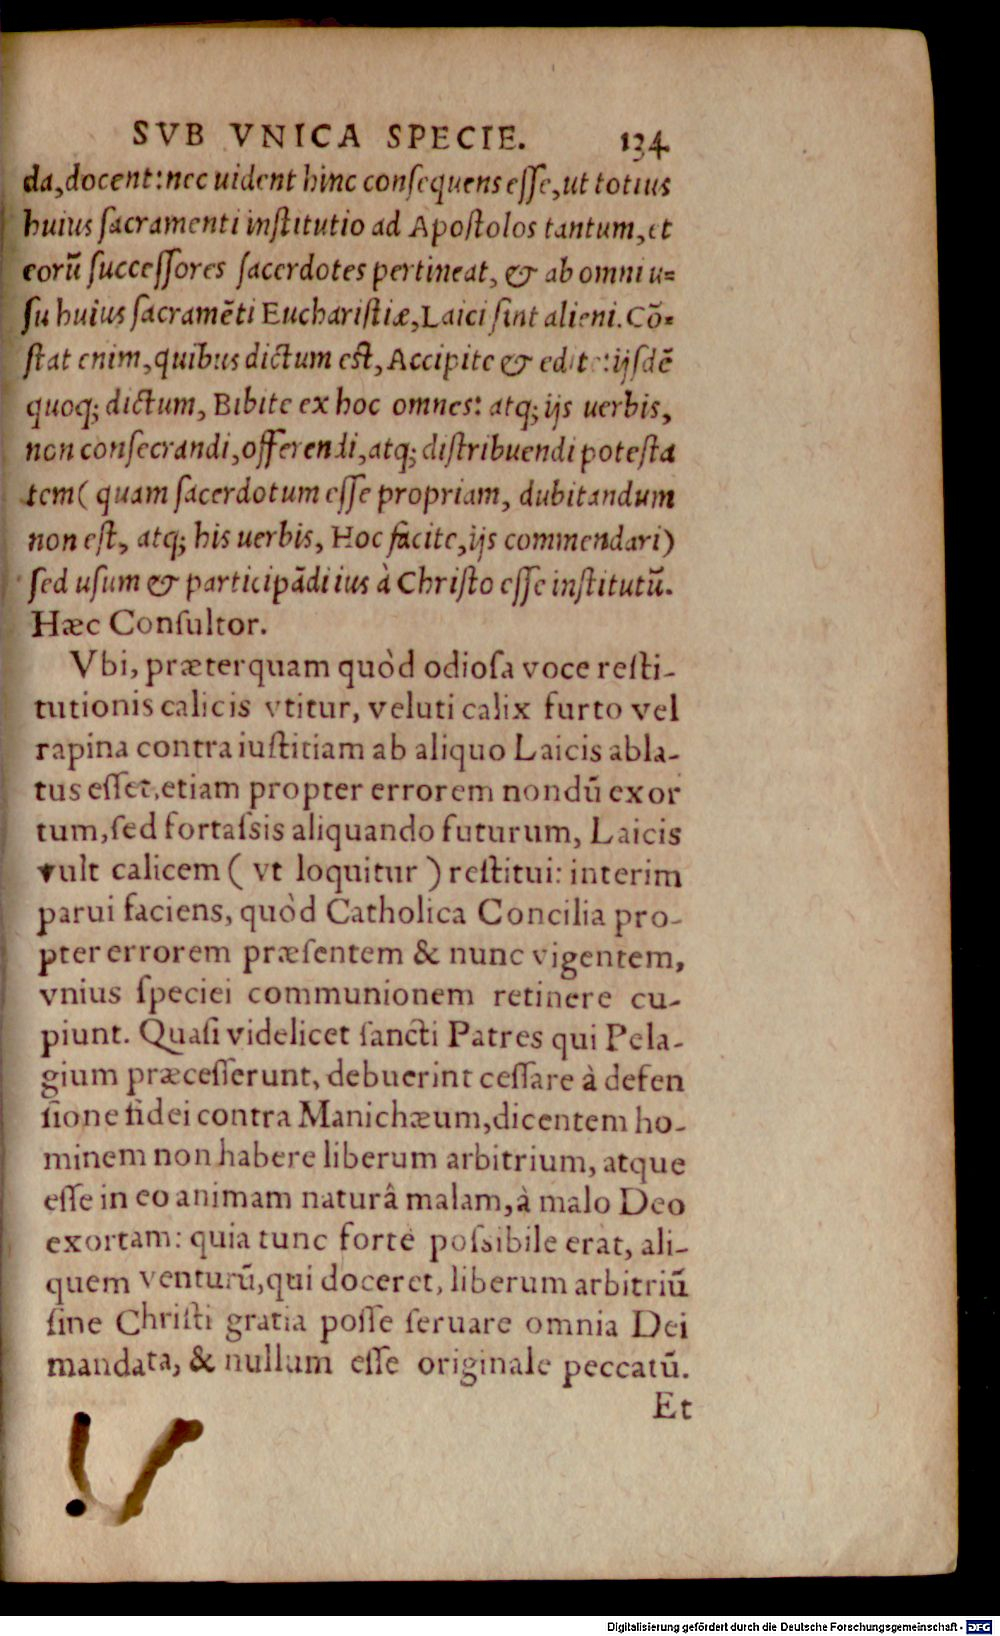 SVB VNICA SPECIE. 134
da, docent: nec uident hinc consequens esse, ut totius
huius sacramenti institutio ad Apostolos tantum, et
eorũ successores sacerdotes pertineat, & ab omni u=
su huius sacramẽti Eucharistiæ, Laici sint alieni. Cõ=
stat enim, quibus dictum est, Accipite & edite: ijsdẽ
quoq; dictum, Bibite ex hoc omnes: atq; ijs uerbis,
non consecrandi, offerendi, atq; distribuendi potesta
tem ( quam sacerdotum esse propriam, dubitandum
non est, atq; his uerbis, Hoc facite, ijs commendari)
sed usum & participãdi ius à Christo esse institutũ.
Hæc Consultor.
Vbi, præterquam quòd odiosa voce resti-
tutionis calicis vtitur, veluti calix furto vel
rapina contra iustitiam ab aliquo Laicis abla-
tus esset, etiam propter errorem nondũ exor
tum, sed fortassis aliquando futurum, Laicis
vult calicem ( vt loquitur ) restitui: interim
parui faciens, quòd Catholica Concilia pro-
pter errorem præsentem & nunc vigentem,
vnius speciei communionem retinere cu-
piunt. Quasi videlicet sancti Patres qui Pela-
gium præcesserunt, debuerint cessare à defen
sione fidei contra Manichæum, dicentem ho-
minem non habere liberum arbitrium, atque
esse in eo animam naturâ malam, à malo Deo
exortam: quia tunc fortè possibile erat, ali-
quem venturũ, qui doceret, liberum arbitriũ
sine Christi gratia posse seruare omnia Dei
mandata, & nullum esse originale peccatũ.
Et
Digitalisierung gefördert durch die Deutsche Forschungsgemeinschaft - DFG